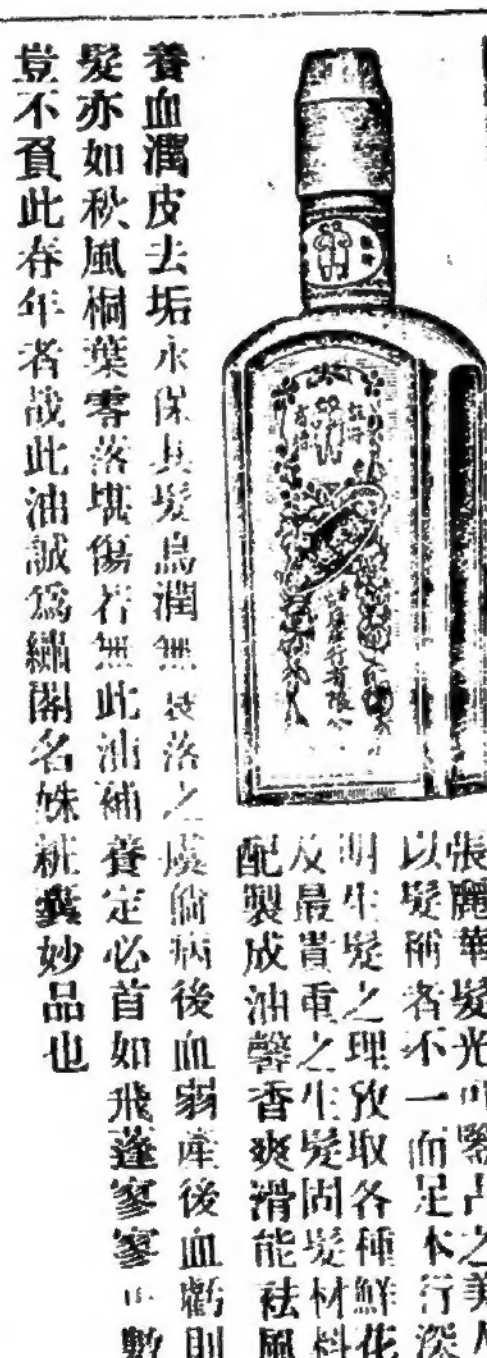 張麗華髮光可鑒古之美人
以髮稱者不一而足本行深
明生髮之理攷取各種鮮花
及最貴重之生髮固髮材料
配製成油馨香爽滑能祛風
養血潤皮去垢永保其髮烏潤無衰落之虞倘病後血弱產後血虧則
髮亦如秋風桐葉零落堪傷若無此油補養定必首如飛蓬寥寥可數
豈不負此春年者哉此油誠爲繡閣名姝粧奩妙品也